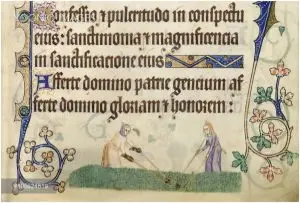 Confessio et pulcritudo in conspectu
eius: sanctimonia et magnificencia
in sanctificacione eius
Afferte domino patrie gencium af
ferte domino gloriam et honorem: